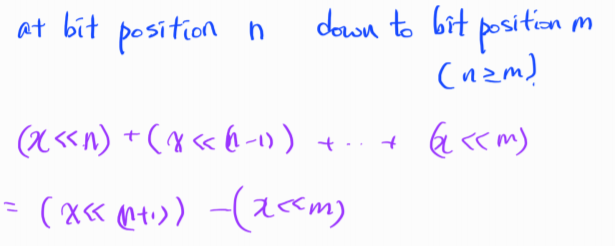 at bit position n down to bit position m
(n≥m)
(x<<n) + (x<<(n-1)) + .. + (x<<m)
= (x<<(n+1)) - (x<<m)